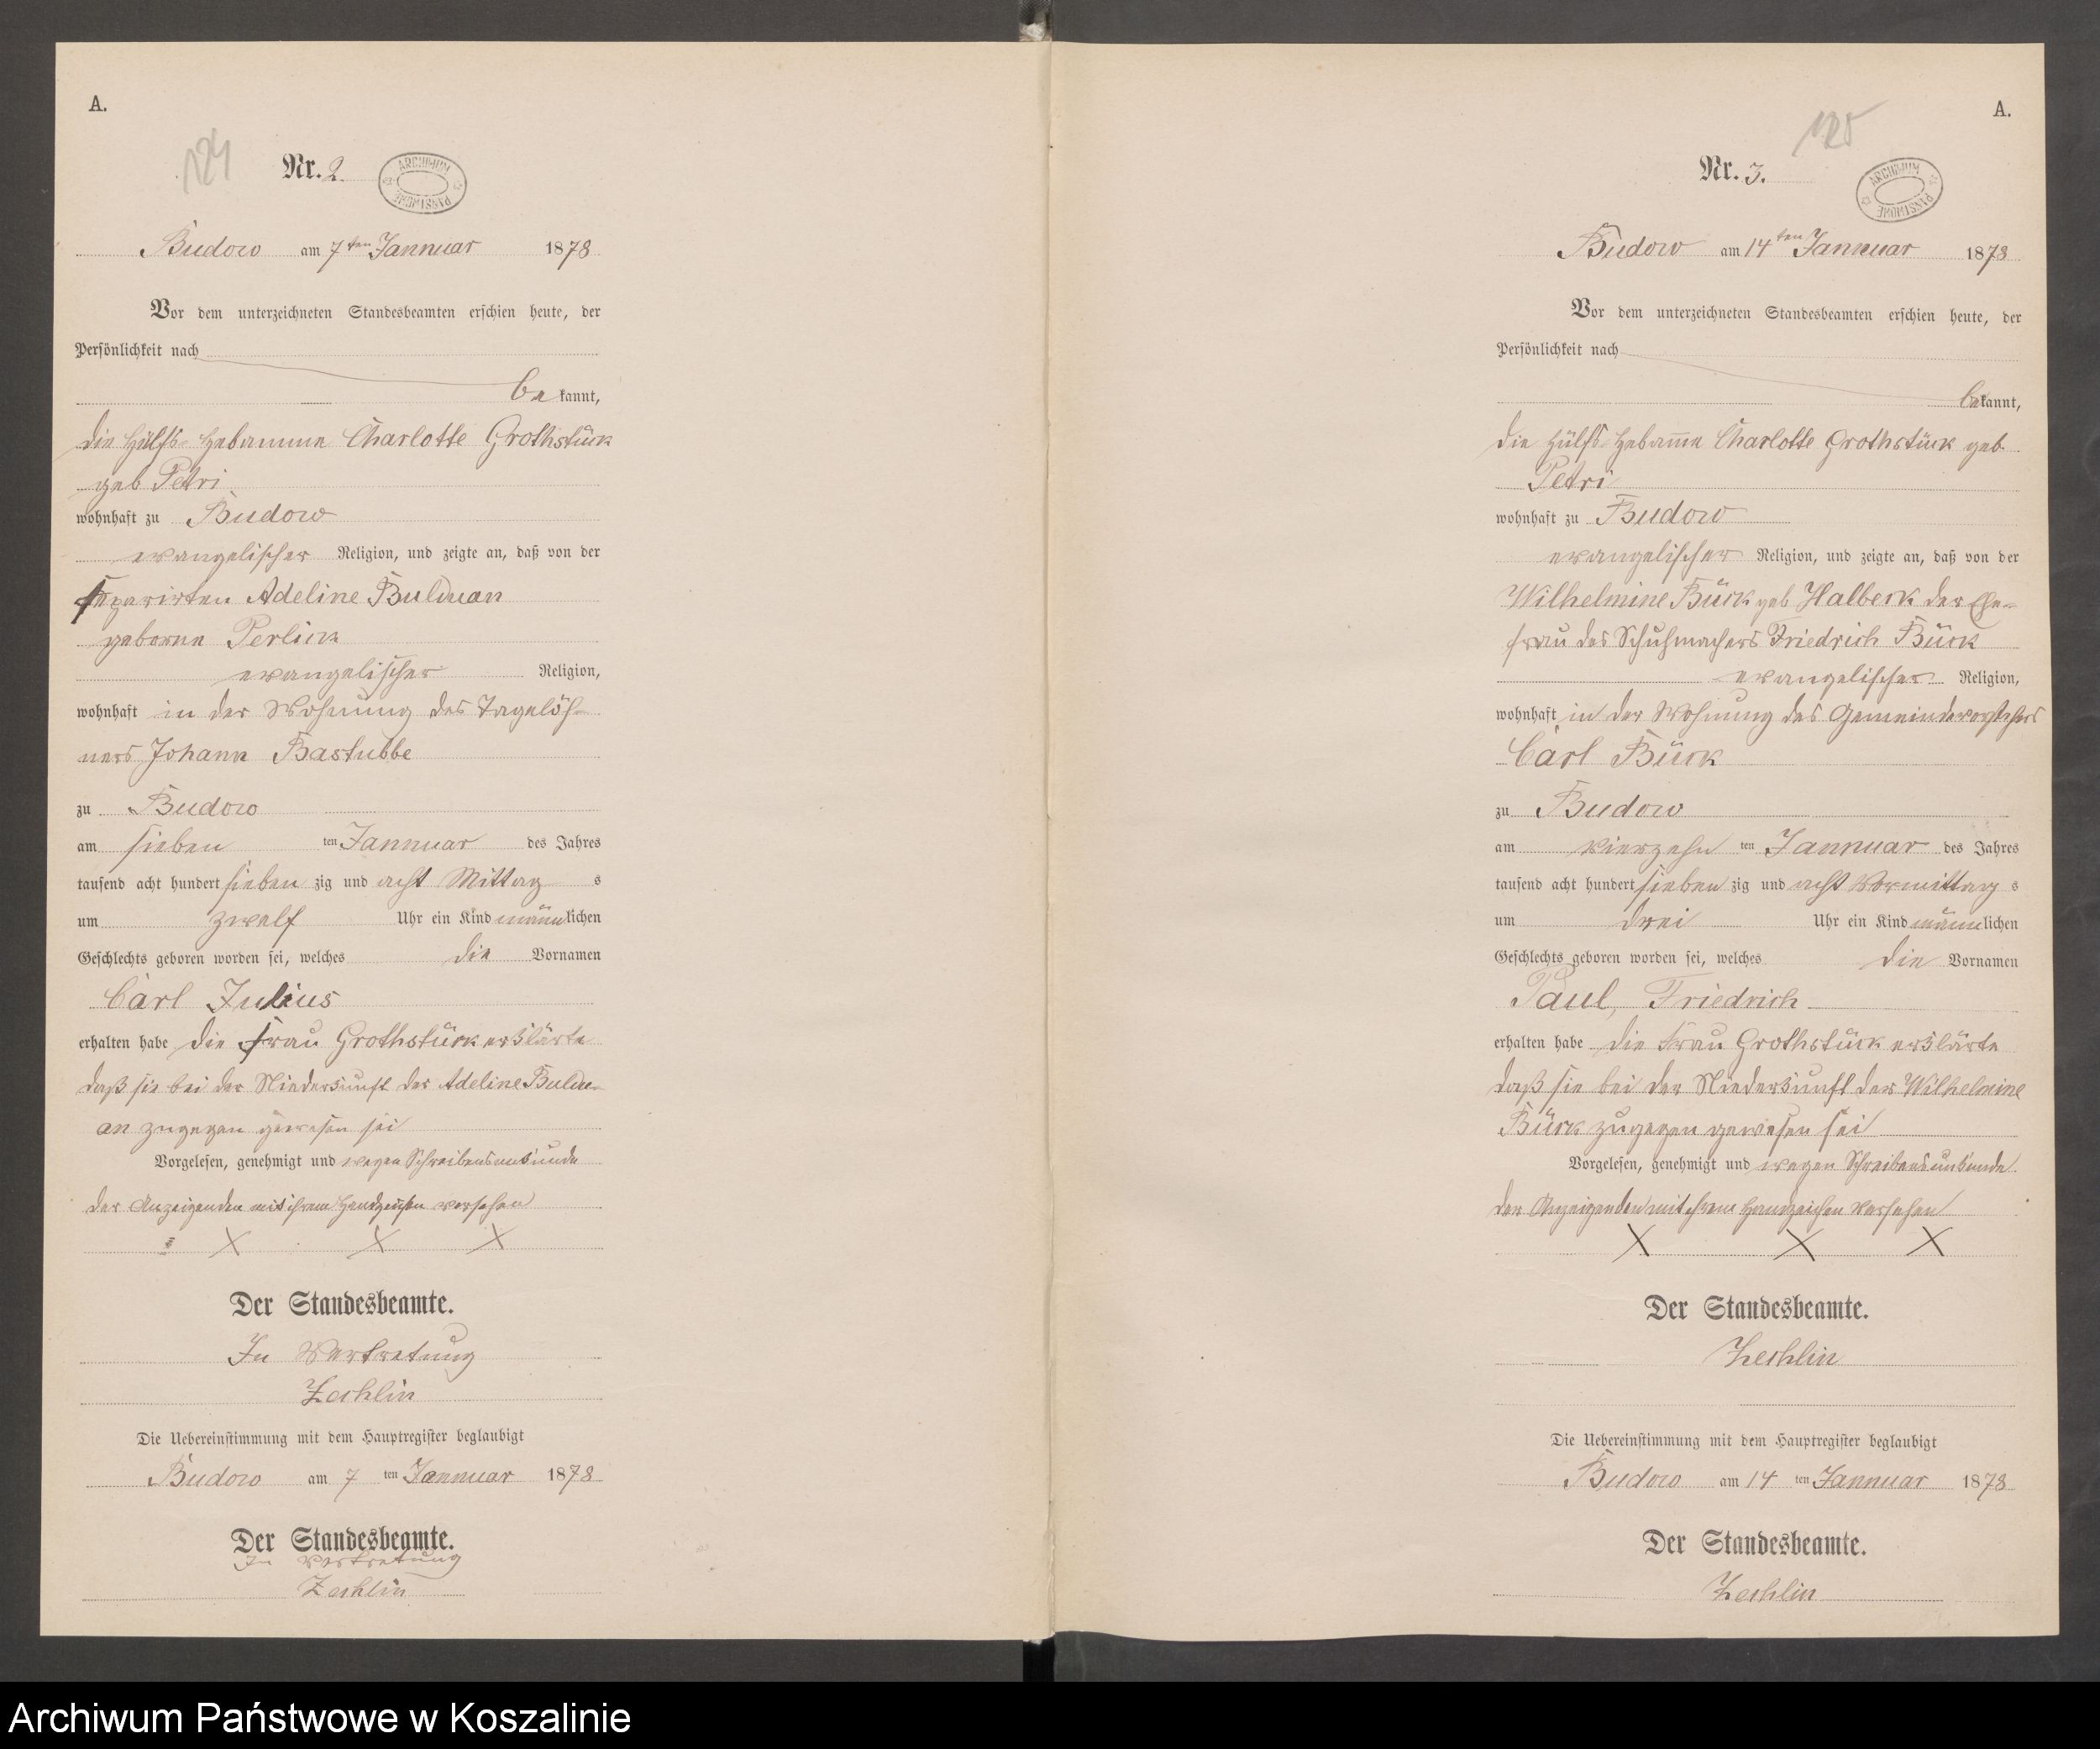 A.
124
Nr. 2.
ARCHIWUM PAŃSTWOWE
Budow am 7ten Jannuar 1878
Vor dem unterzeichneten Standesbeamten erschien heute, der
Persönlichkeit nach
be kannt,
die Hülfs-Hebamme Charlotte Grothstück
geb Petri
wohnhaft zu Budow
evangelischer Religion, und zeigte an, daß von der
separirten Adeline Bulduan
geborne Perlick
evangelischer Religion,
wohnhaft in der Wohnung des Tagelöh-
ners Johann Bastubbe
zu Budow
am sieben ten Jannuar des Jahres
tausend acht hundert sieben zig und acht Mittag s
um zwölf Uhr ein Kind männlichen
Geschlechts geboren worden sei, welches die Vornamen
Carl Julius
erhalten habe die Frau Grothstück erklärte
daß sie bei der Niederkunft der Adeline Buldu-
an zugegen gewesen sei
Vorgelesen, genehmigt und wegen Schreibensunkunde
der Anzeigenden mit ihrem Handzeichen versehen
X X X
Der Standesbeamte.
In Vertretung
Zechlin
Die Uebereinstimmung mit dem Hauptregister beglaubigt
Budow am 7 ten Jannuar 1878
Der Standesbeamte.
In Vertretung
Zechlin
A.
125
Nr. 3.
ARCHIWUM PAŃSTWOWE
Budow am 14ten Jannuar 1878
Vor dem unterzeichneten Standesbeamten erschien heute, der
Persönlichkeit nach
bekannt,
die Hülfs Hebam̅e Charlotte Grothstück geb.
Petri
wohnhaft zu Budow
evangelischer Religion, und zeigte an, daß von der
Wilhelmine Bück geb Halbeck der Ehe-
frau des Schuhmachers Friedrich Bück
evangelischer Religion,
wohnhaft in der Wohnung des Gemeindevorstehers
Carl Bück
zu Budow
am vierzehn ten Jannuar des Jahres
tausend acht hundert sieben zig und acht Vormittag s
um drei Uhr ein Kind männlichen
Geschlechts geboren worden sei, welches die Vornamen
Paul, Friedrich
erhalten habe die Frau Grothstück erklärte
daß sie bei der Niederkunft der Wilhelmine
Bück zugegen gewesen sei
Vorgelesen, genehmigt und wegen Schreibensunkunde
der Anzeigenden mit ihrem Handzeichen versehen
X X X
Der Standesbeamte.
Zechlin
Die Uebereinstimmung mit dem Hauptregister beglaubigt
Budow am 14 ten Jannuar 1878
Der Standesbeamte.
Zechlin
Archiwum Państwowe w Koszalinie